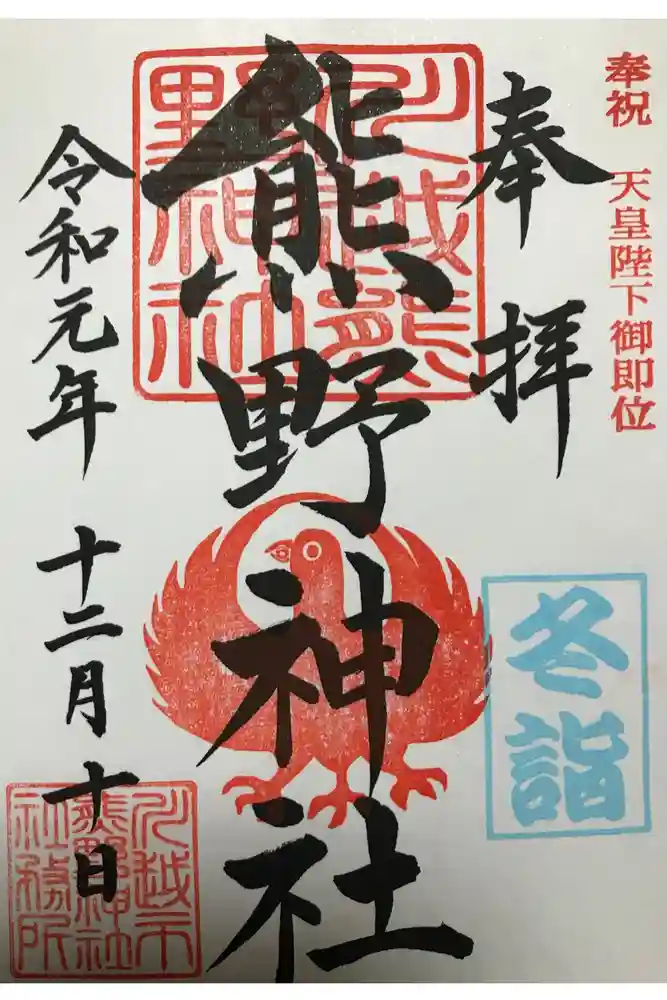 奉祝 天皇陛下御即位
奉拝
冬詣
川越熊野神社
熊野神社
令和元年 十二月 十日
川越市熊野神社社務所